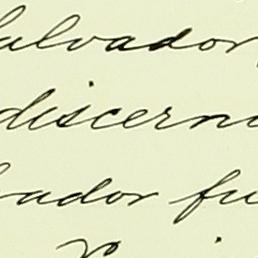 alvador
discerni
ador fu